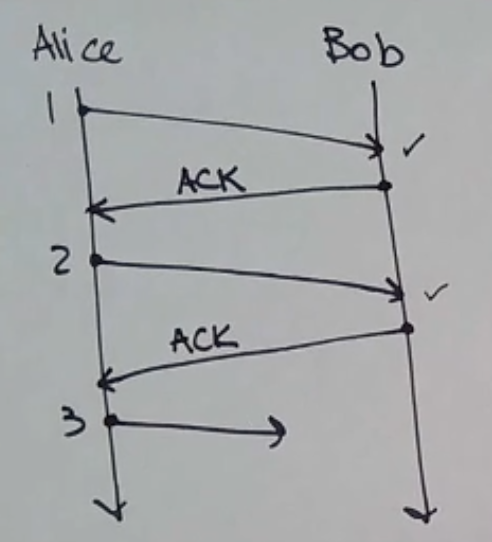 Alice Bob
1
ACK
2
ACK
3